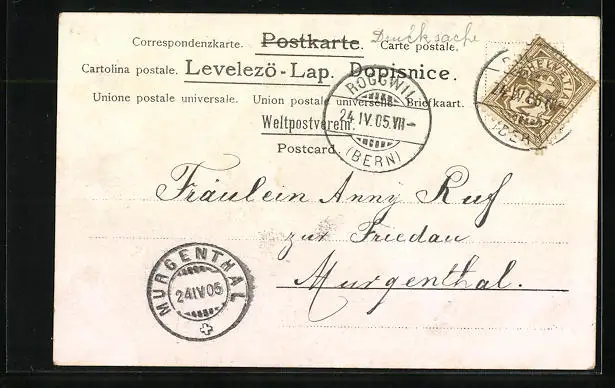 Correspondenzkarte. Postkarte. Carte postale.
Drucksache
Cartolina postale. Levelezö-Lap. Dopisnice.
Unione postale universale. Union postale universelle. Briefkaart.
Weltpostverein.
Postcard.
ROGGWIL
24.IV.05.VII-
(BERN)
HELVETIA
Fräulein Anny Ruf
zur Friedau
Murgenthal.
MURGENTHAL
24 IV 05